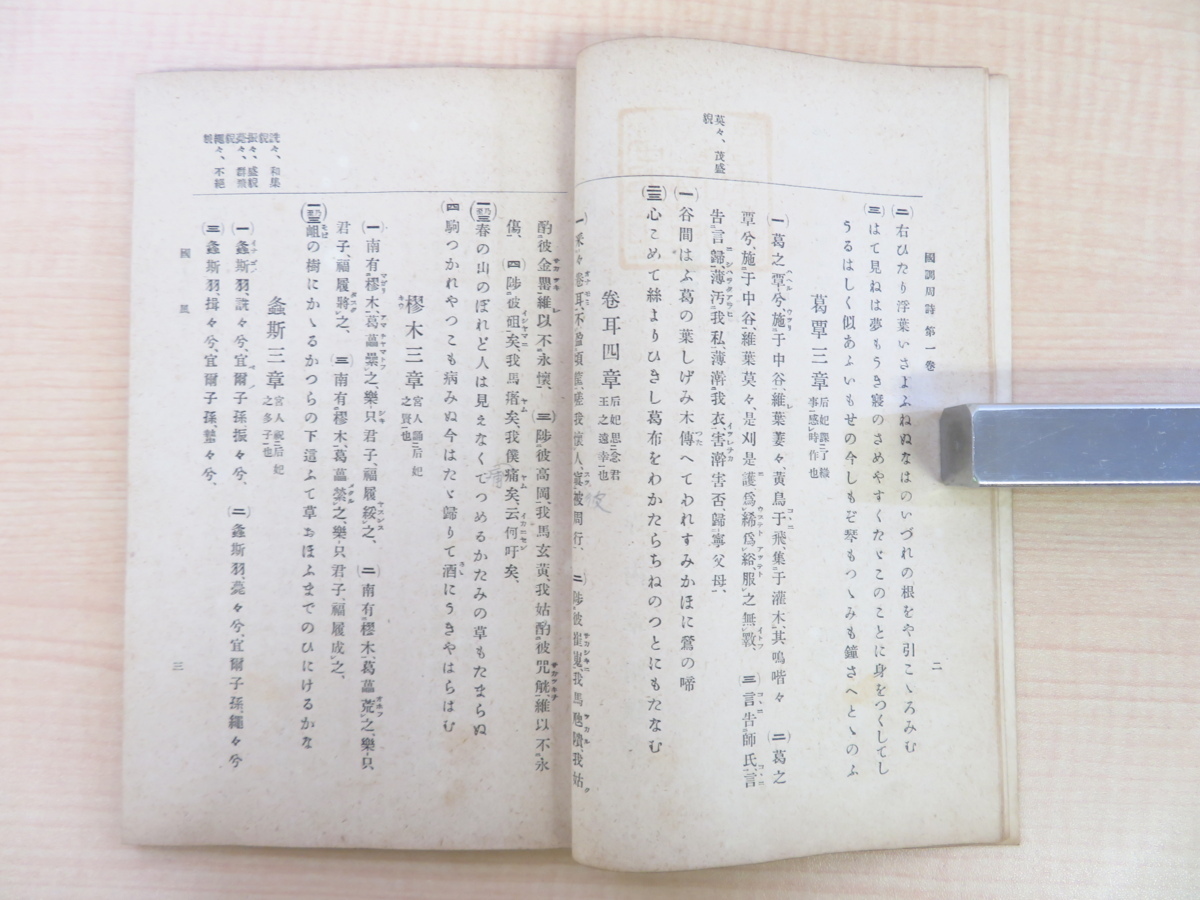 國調周詩 第一卷
(二)右ひたり浮葉いさよふねぬなはのいづれの根をや引こゝろみむ
(三)はて見ねは夢もうき寢のさめやすくたゞこのことに身をつくしてし
うるはしく似あふいもせの今しもぞ琴もつゝみも鐘さへとゝのふ
葛覃三章
(一)葛之覃兮、施于中谷、維葉萋々、黃鳥于飛、集于灌木、其鳴喈々 (二)葛之
覃兮、施于中谷、維葉莫々、是刈是濩、爲絺爲綌、服之無斁、 (三)言告師氏、言
告言歸、薄汚我私、薄澣我衣、害澣害否、歸寧父母、
(一)谷間はふ葛の葉しげみ木傳へてわれすみかほに鶯の啼
(二三)心こめて絲よりひきし葛布をわかたらちねのつとにもたなむ
莫々、茂盛
貌
卷耳四章 后妃思念君
王之遠幸也
二
酌彼金罍、維以不永懷、 (三)陟彼高岡、我馬玄黃、我姑酌彼兕觥、維以不永
傷、 (四)陟彼砠矣、我馬瘏矣、我僕痡矣、云何吁矣、
春の山のぼれど人は見えなくてつめるかたみの草もたまらぬ
(四)駒つかれやつこも病みぬ今はたゞ歸りて酒にうきやはらはむ
樛木三章 宮人誦后妃
之賢也
(一)南有樛木、葛藟纍之、樂只君子、福履綏之、 (二)南有樛木、葛藟荒之、樂只
君子、福履將之、 (三)南有樛木、葛藟縈之、樂只君子、福履成之、
岨の樹にかゝるかつらの下這ふて草おほふまでのひにけるかな
螽斯三章 宮人祝后妃
之多子也
(一)螽斯羽、詵々兮、宜爾子孫、振々兮、 (二)螽斯羽、薨々兮、宜爾子孫、繩々兮
(三)螽斯羽、揖々兮、宜爾子孫、蟄々兮、
詵々、和集
貌
振々、盛貌
不絕
國風
三